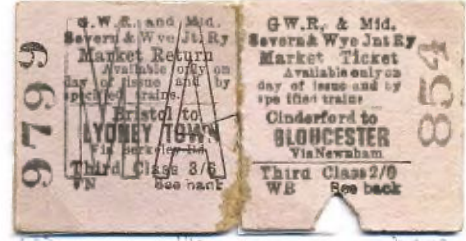 9799
G.W.R. and Mid.
Severn & Wye Jt. Ry
Market Return
Available only on
day of issue and by
specified trains.
Bristol to
LYDNEY TOWN
Via Berkeley Rd.
Third Class 3/6
WN See back
MA
G.W.R. & Mid.
Severn & Wye Jnt Ry
Market Ticket
Available only on
day of issue and by
specified trains
Cinderford to
GLOUCESTER
Via Newnham.
Third Class 2/0
WB See back
854